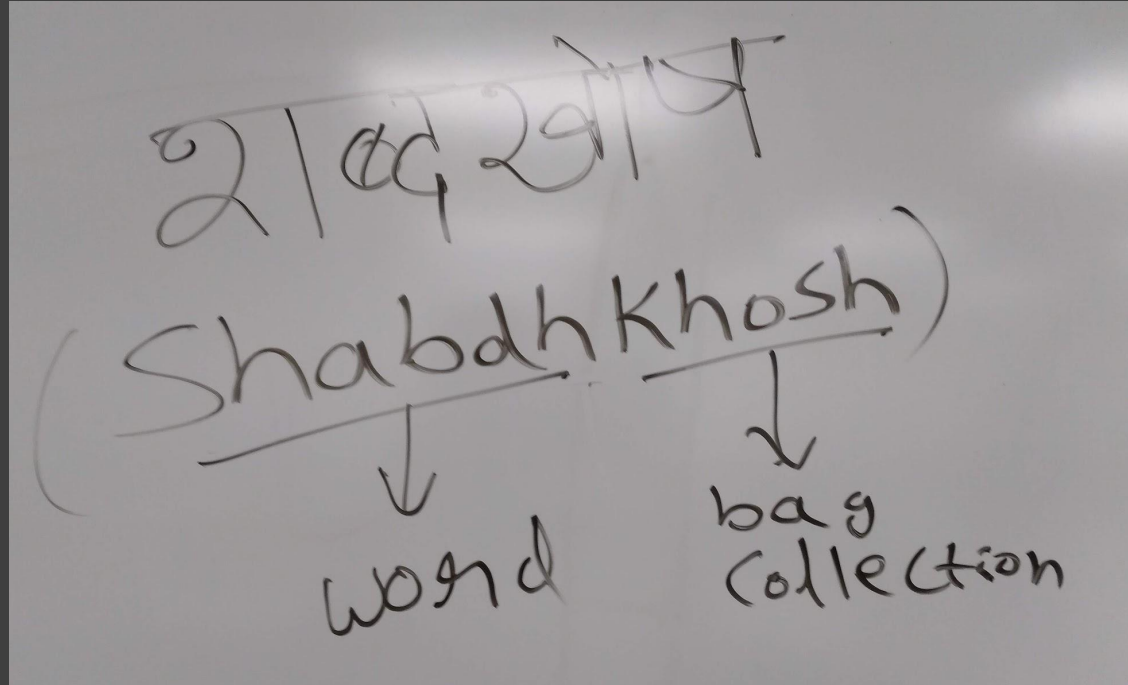 शब्दखोष
(Shabdhkhosh)
word
bag
collection